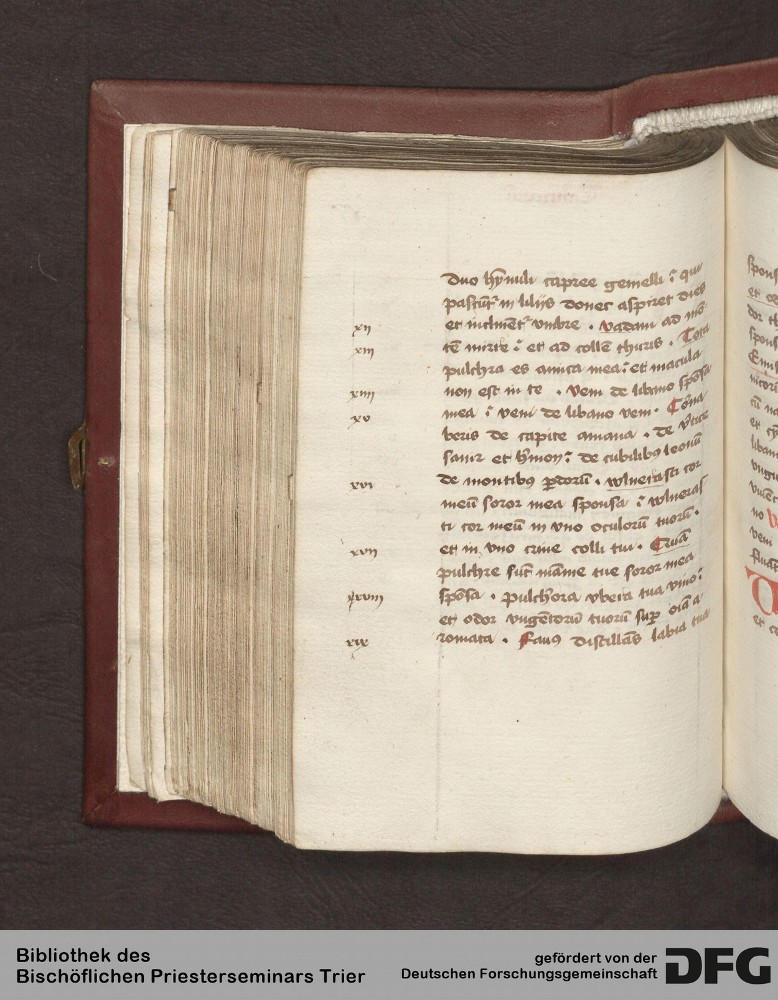 duo hynuli capree gemelli : qui
pascūt' in lilijs donec aspiret dies
xij et inclinēt' vmbre . vadam ad mō
xiij tē mirre : et ad collē thuris . Tota
pulchra es amica mea : et macula
xiiij non est in te . veni de libano spōsa
xv mea : veni de libano veni . Corōna
beris de capite amana . de v'tice
sanir et h'mon : de cubilibꝫ leonū
xvi de montibꝫ pardorū . wlnerasti cor
meū soror mea sponsa : wlneras
ti cor meū in vno oculorū tuorū .
xvij et in vno crine colli tui . Quā
pulchre sūt māme tue soror mea
xviij spōsa . pulchiora vbera tua vino :
et odor vngētorū tuorū sup oīa a
xix romata . Fauꝰ distillās labia tua
spons
et od
dor th
spons
et c
libani
no
veni
et c
Bibliothek des
Bischöflichen Priesterseminars Trier
gefördert von der
Deutschen Forschungsgemeinschaft DFG